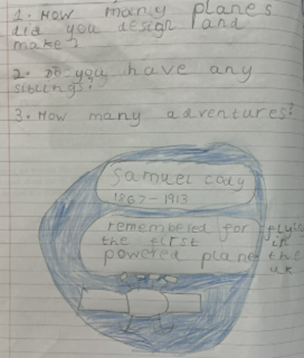 1. How many planes
did you design and
make?
2. Do you have any
siblings?
3. How many adventures?
Samuel Cody
1867-1913
remembered for flying
the first in
powered plane the
uk